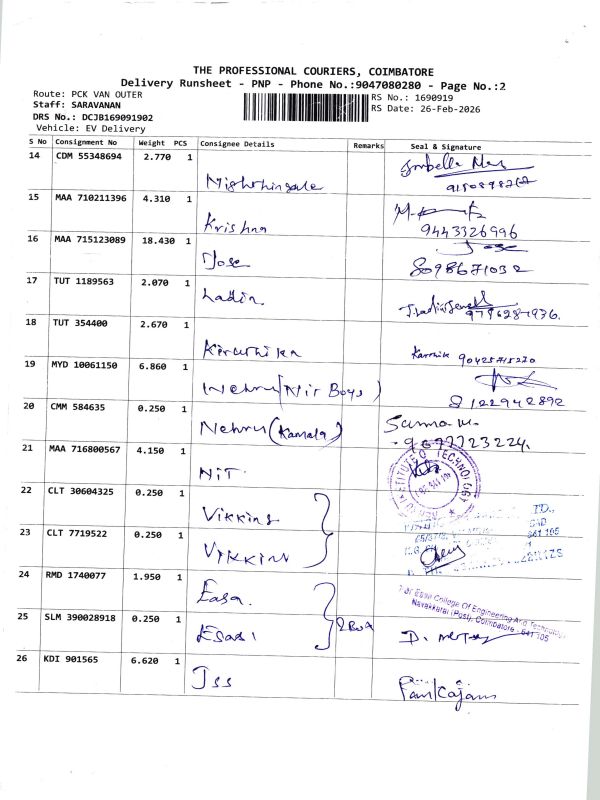 THE PROFESSIONAL COURIERS, COIMBATORE
Delivery Runsheet - PNP - Phone No.:9047080280 - Page No.:2
Route: PCK VAN OUTER
RS No.: 1690919
Staff: SARAVANAN
RS Date: 26-Feb-2026
DRS No.: DCJB169091902
Vehicle: EV Delivery
S No Consignment No Weight PCS Consignee Details Remarks Seal & Signature
14 CDM 55348694 2.770 1
Nightingale
15 MAA 710211396 4.310 1
Krishna
9443326996
16 MAA 715123089 18.430 1
Jose Jose
8098671032
17 TUT 1189563 2.070 1
Ladin.
18 TUT 354400 2.670 1
Kiruthika Karthik 90425715220
19 MYD 10061150 6.860 1
Nehru (Nir Boys)
8122942892
20 CMM 584635 0.250 1
Nehru (Kamala)
9697723224
21 MAA 716800567 4.150 1
NIT. TECHNOLOGY
22 CLT 30604325 0.250 1
Vikkins
23 CLT 7719522 0.250 1
Vikkins
24 RMD 1740077 1.950 1
Easa.
Easa College Of Engineering And Technology
Navakkarai (Post), Coimbatore - 641 105
25 SLM 390028918 0.250 1
Easa
26 KDI 901565 6.620 1
Jss